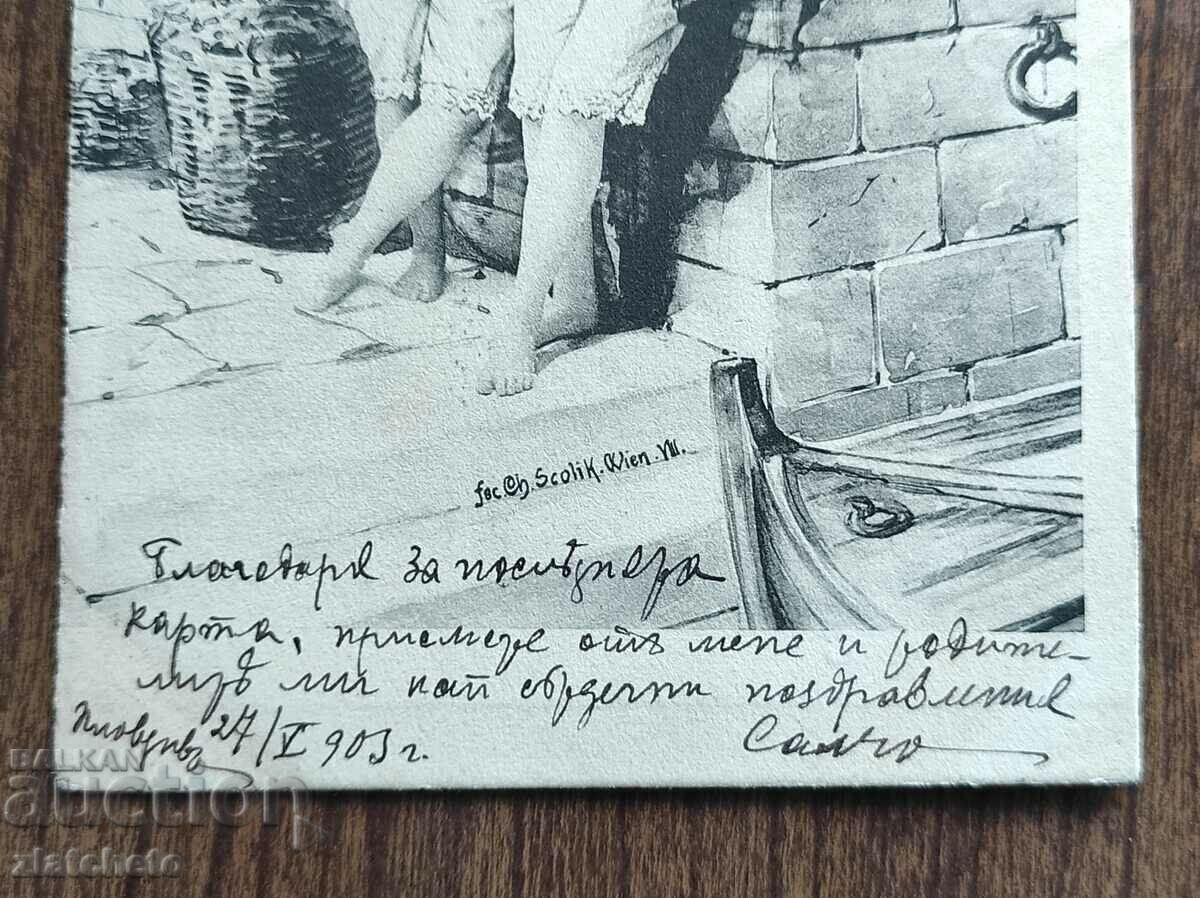 fec. Ch. Scolik. Wien. VIII.
Благодаря за
карта, отъ мене и родите-
ми най сърдечни поздравления
Пловдивъ 27/V 903 г.
BALKAN
auction
zlatcheto